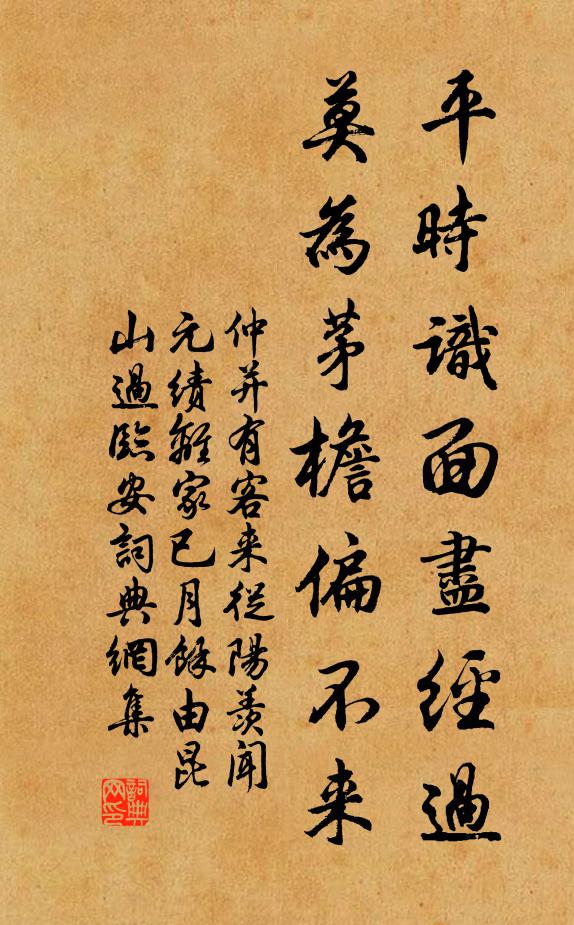 平時識面盡經過
莫為茅檐偏不来
仲并有客来從陽羨聞
元績離家已月餘由昆
山過臨安詞典網集
詞典
网印